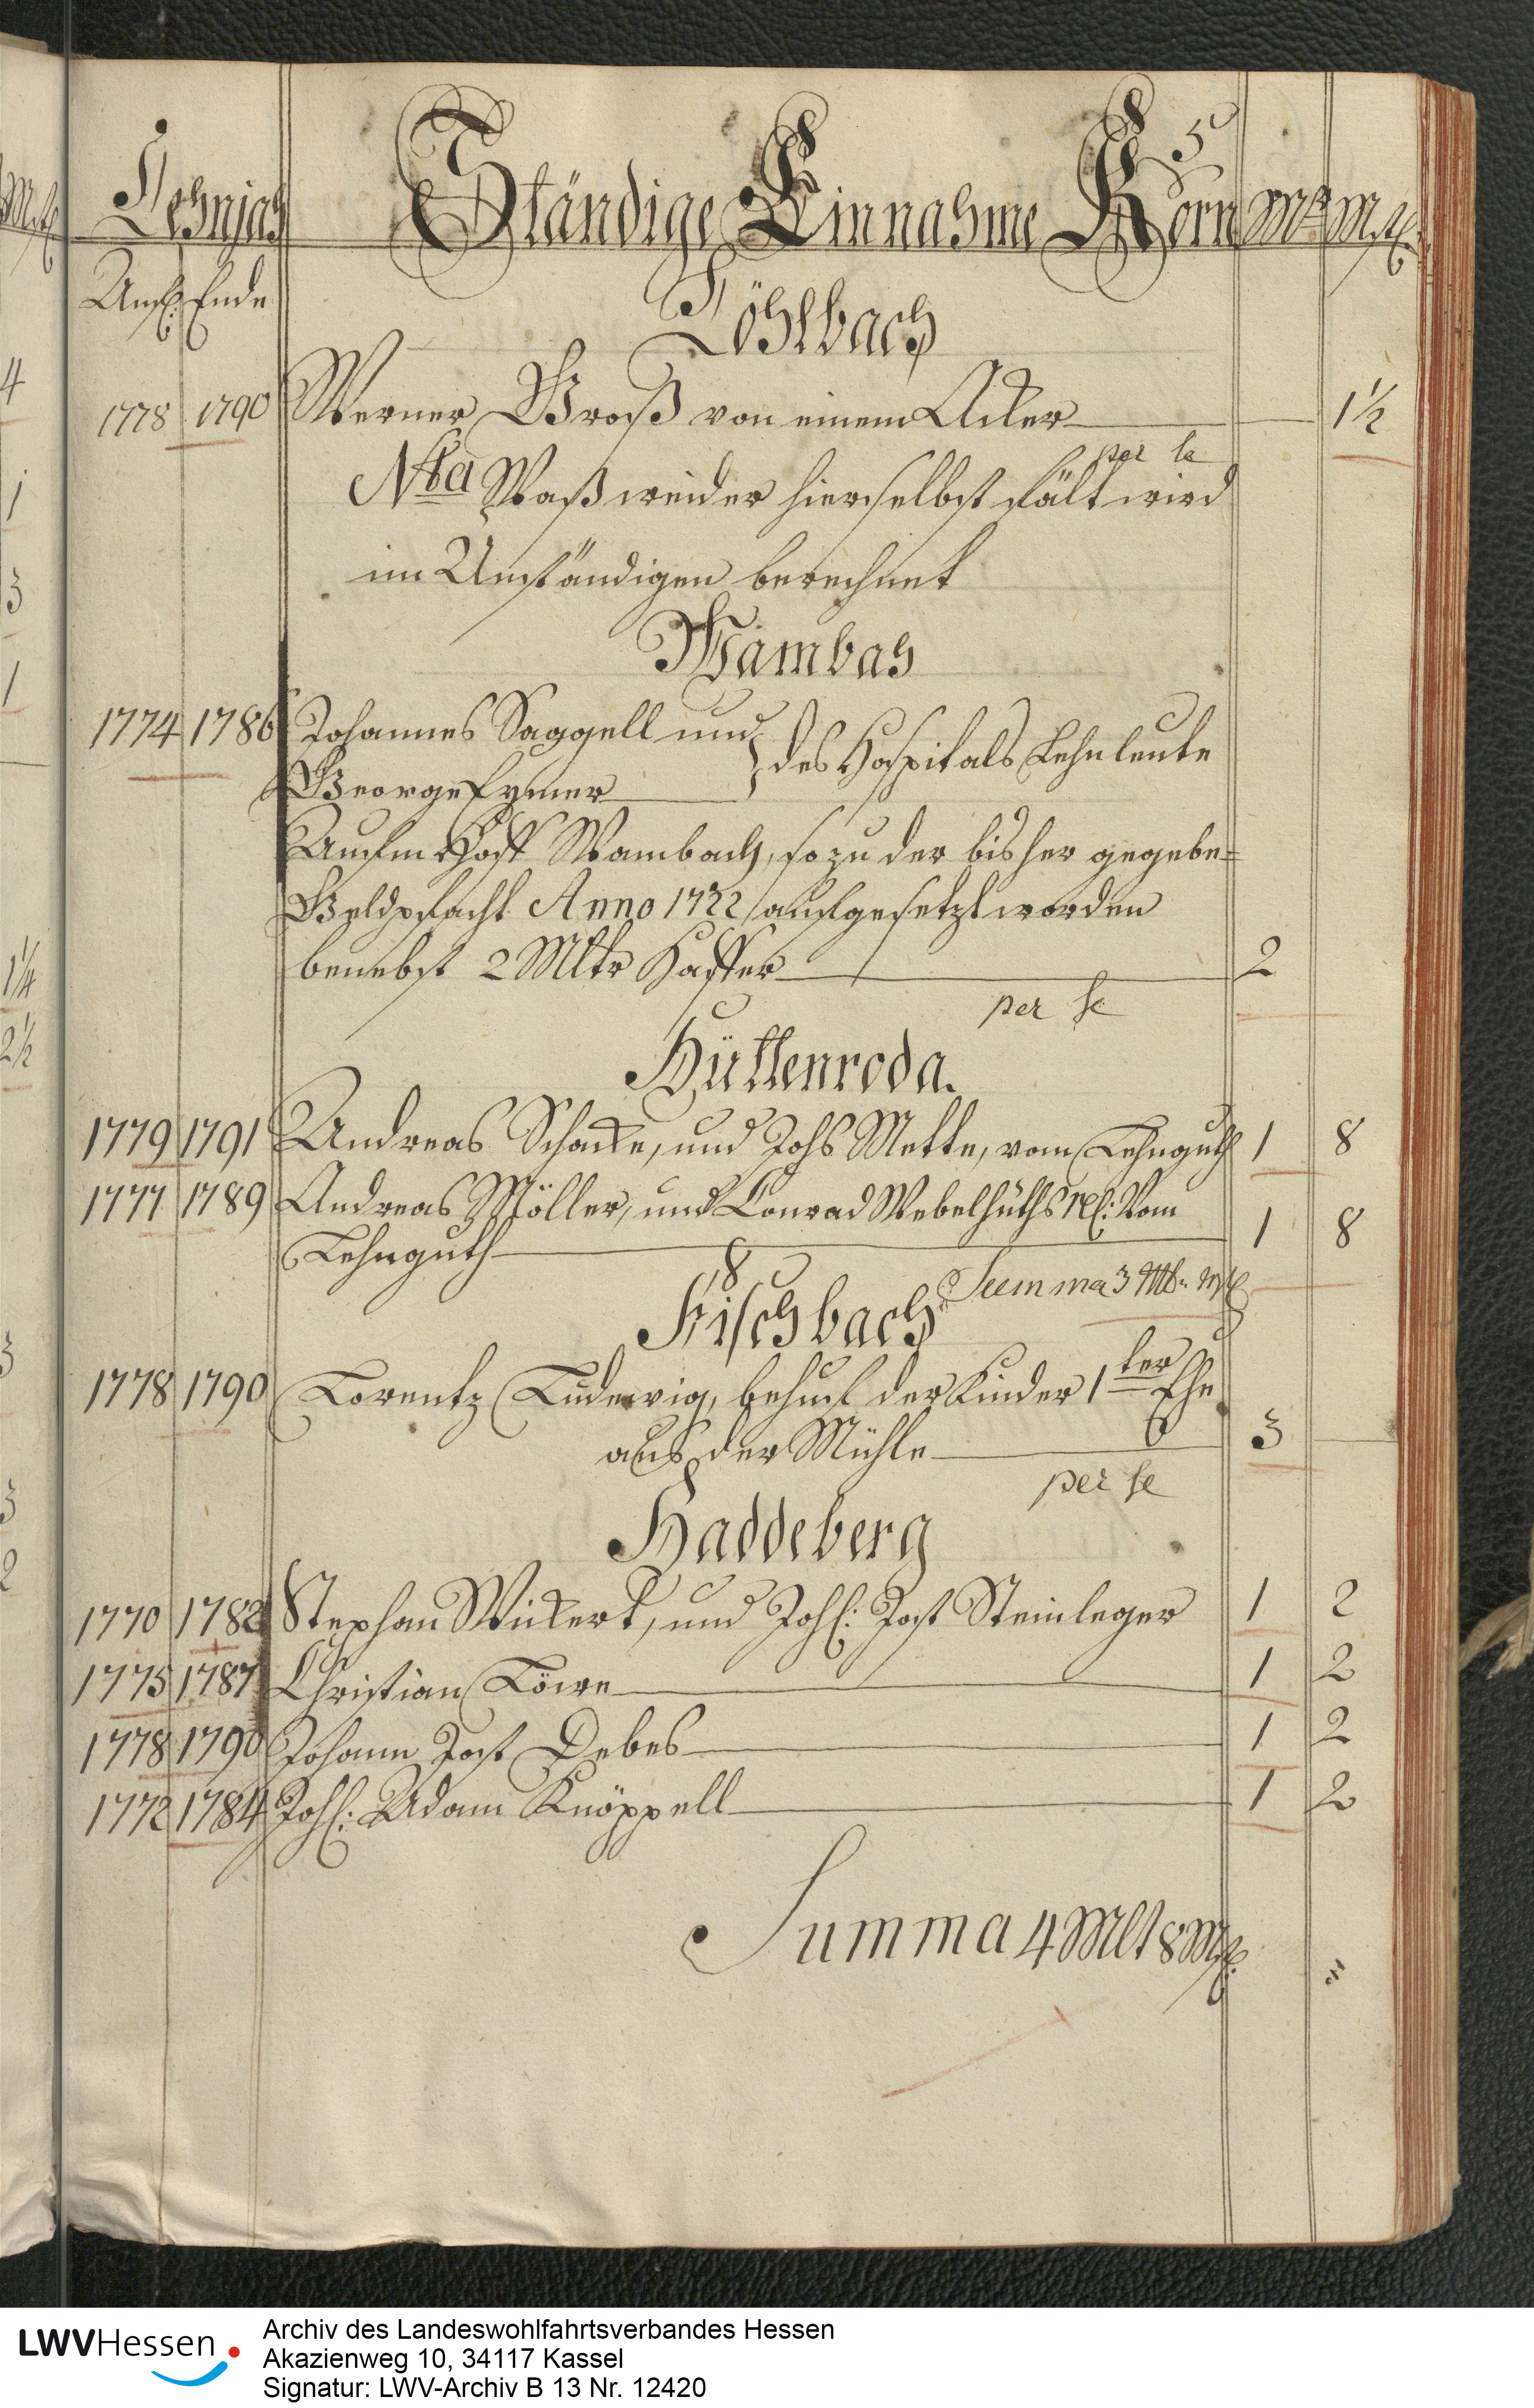 5
Lehnjah Ständige Einnahme Korn Mlt Mst:
Anf: Ende
Löhlbach
1778 1790 Werner Groß von einem Acker 1½
per se
Nta Waß weider hierselbst fält wird
im Unständigen berechnet
Wambach
1774 1786 Johannes Saggell und
George Eymer } des Hospitals Lehnleute
Aufm Hoff Wambach, so zu der bisher gegebe=
Geldpfacht Anno 1722 aufgesetzt worden
benebst 2 Mltr Haffer 2
per se
Hüttenroda.
1779 1791 Andreas Schacke, und Johs Mette, vom Lehnguth 1 8
1777 1789 Andreas Möller, und Conrad Webelhuths rel: Vom
Lehnguth 1 8
Summa 3 Mltr
Fischbach
1778 1790 Lorentz Ludewig, behuf der Kinder 1ter Ehe
aus der Mühle 3
per se
Haddeberg
1770 1782 Stephan Wickert, und Joh: Jost Steinleger 1 2
1775 1787 Christian Löwe 1 2
1778 1790 Johann Jost Debes 1 2
1772 1784 Joh: Adam Knöppell 1 2
Summa 4 Mlt 8 Mst:
4
1
3
1
1¼
2½
3
3
2
LWVHessen
Archiv des Landeswohlfahrtsverbandes Hessen
Akazienweg 10, 34117 Kassel
Signatur: LWV-Archiv B 13 Nr. 12420